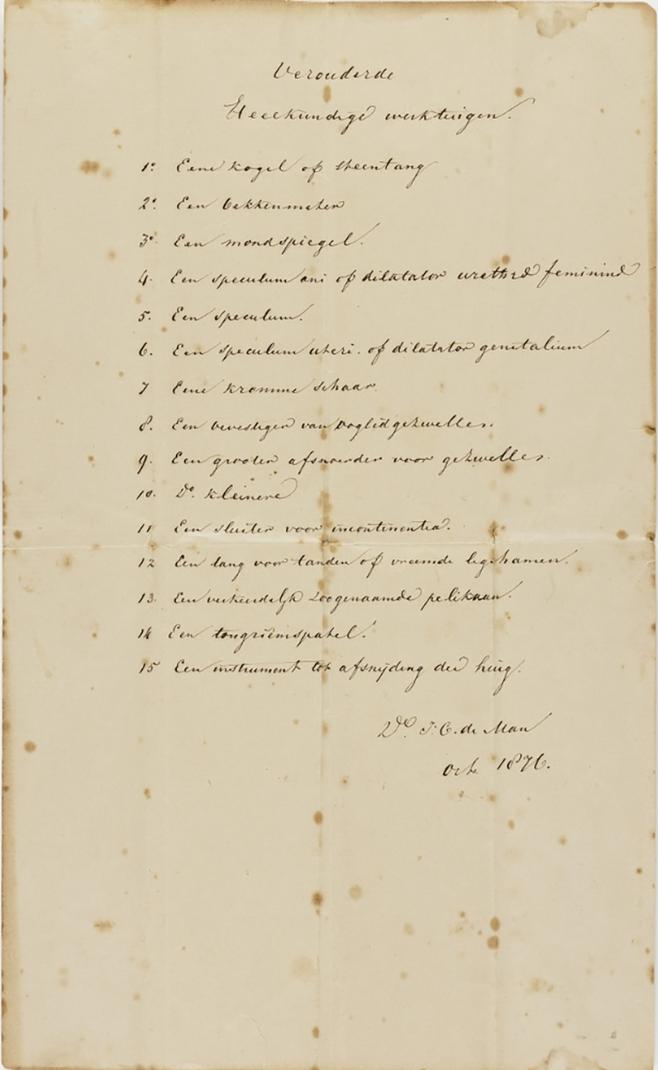 Verouderde
Heelkundige werktuigen.
1º. Eene kogel of steentang
2º. Een bekkenmeter
3º. Een mondspiegel.
4. Een speculum ani of dilatator urethrae feminina
5. Een speculum.
6. Een speculum uteri. of dilatator genitalium
7 Eene kromme schaar
8. Een bevestiger van ooglidgezwellen.
9. Een grooten afsnoerder voor gezwellen.
10. Do. kleinere
11 Een sluiter voor incontinentia.
12 Een tang voor tanden of vreemde ligchamen.
13. Een verkeerdelijk zoogenaamde pelikaan.
14 Een tongriemspatel.
15 Een instrument tot afsnijding der huig.
Dr. J. C. de Man
Oct. 1876.